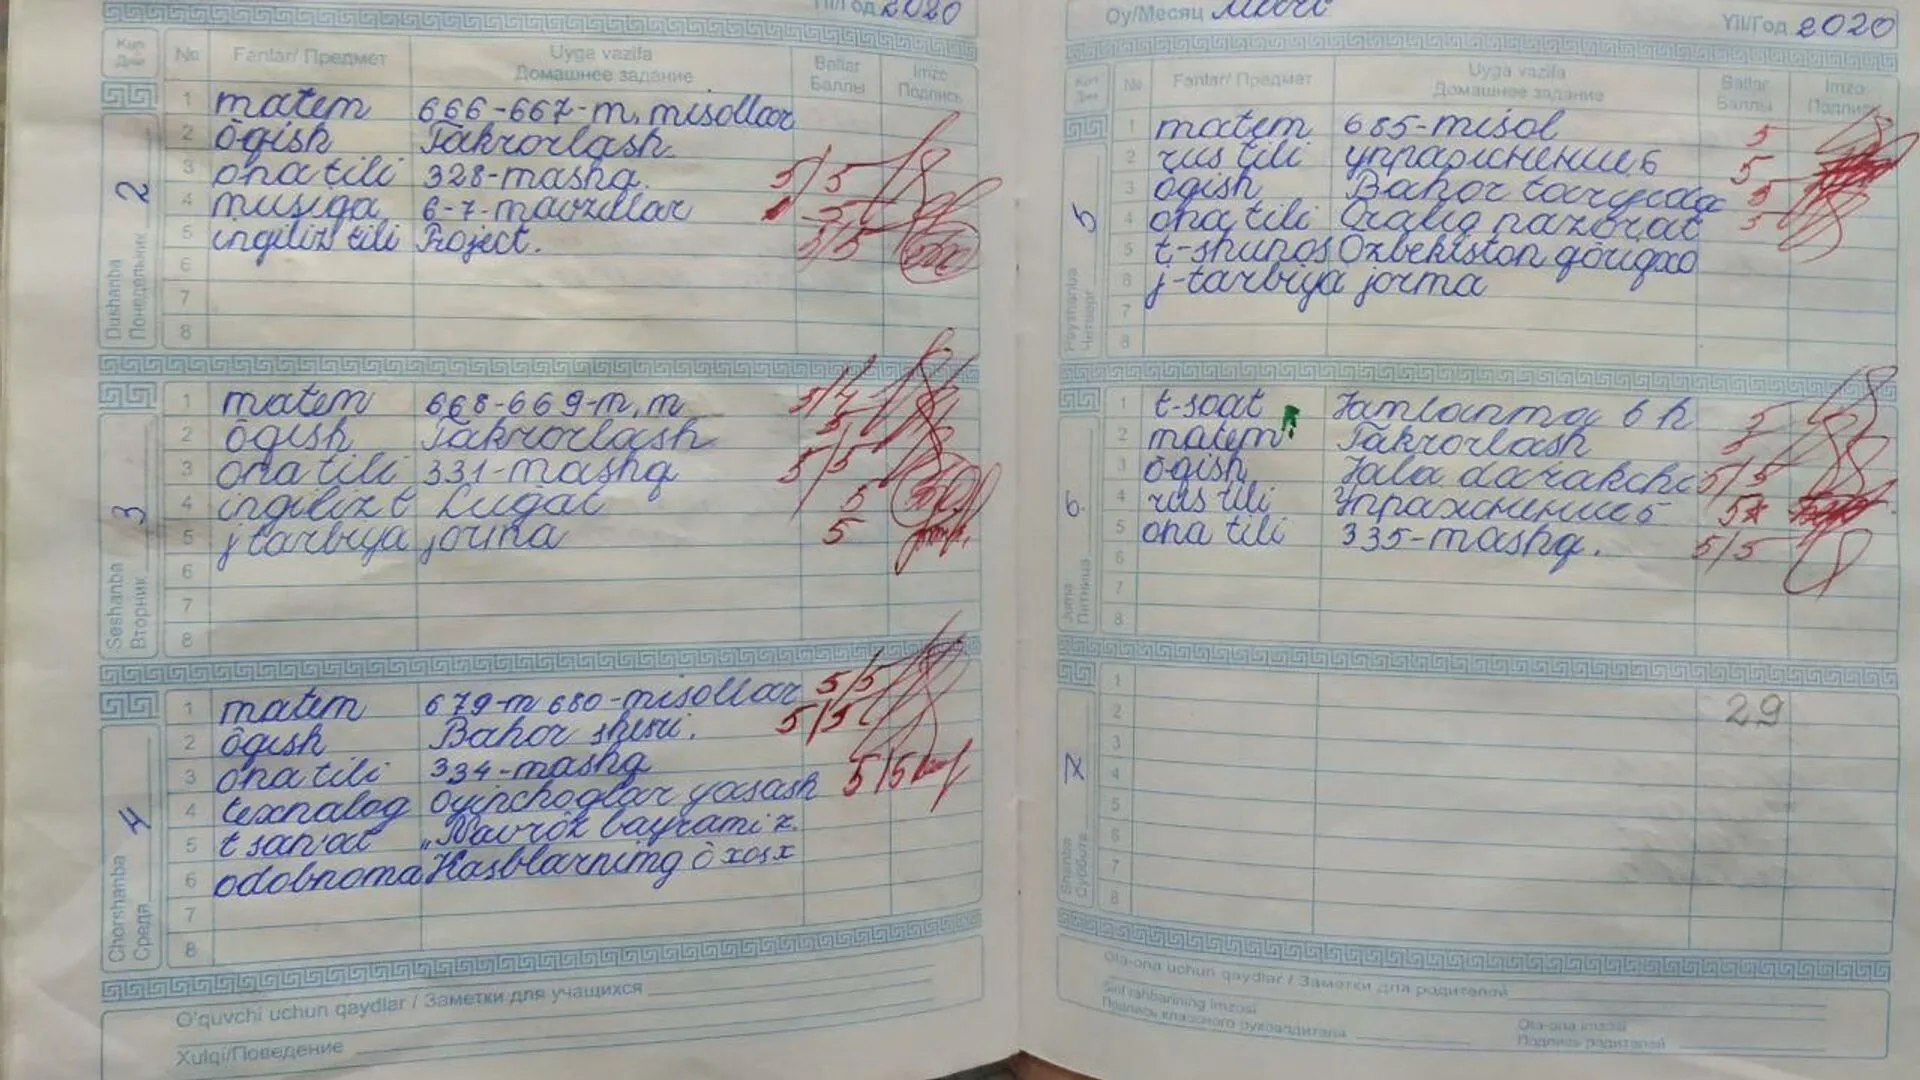 Yil/Год 2020
Kun Дни № Fanlar/ Предмет Uyga vazifa Домашнее задание Ballar Баллы Imzo Подпись
Dushanba Понедельник 2
1 matem 666-667-m. misollar
2 ōqish Takrorlash
3 ona tili 328-mashq. 5/5
4 musiqa 6-7-mavzular 5
5 ingiliz tili Project. 5/5
6
7
8
Seshanba Вторник 3
1 matem 668-669-m, m 5/4
2 ōqish Takrorlash 5
3 ona tili 331-mashq 5/5
4 ingiliz t Lugat 5
5 j tarbiya jorma 5
6
7
8
Chorshanba Среда 4
1 matem 679-m 680-misollar 5/5
2 ōqish Bahor sheri. 5/5
3 ona tili 334-mashq
4 texnalog ōyinchoqlar yasash 5/5
5 t san'at „Navrōz bayrami z.
6 odobnoma Kasblarning ō xosx
7
8
O'quvchi uchun qaydlar / Заметки для учащихся
Xulqi/Поведение
Oy/Месяц Mart Yil/Год 2020
Kun Дни № Fanlar/ Предмет Uyga vazifa Домашнее задание Ballar Баллы Imzo Подпись
Payshanba Четверг 5
1 matem 685-misol 5
2 rus tili упражнение 6 5
3 ōqish Bahor 5
4 ona tili Oraliq nazorat 5
5 t-shunos Ozbekiston
6 j-tarbiya jorma
7
8
Juma Пятница 6
1 t-soat Jamlanma 6 h 5
2 matem Takrorlash 5
3 ōqish Jala darakchi 5/5
4 rus tili Упражнение 5 5
5 ona tili 335-mashq. 5/5
6
7
8
Shanba Суббота 7
1
2 29
3
4
5
6
7
8
Ota-ona uchun qaydlar / Заметки для родителей
Sinf rahbarining imzosi
Подпись классного руководителя
Ota-ona imzosi
Подпись родителей